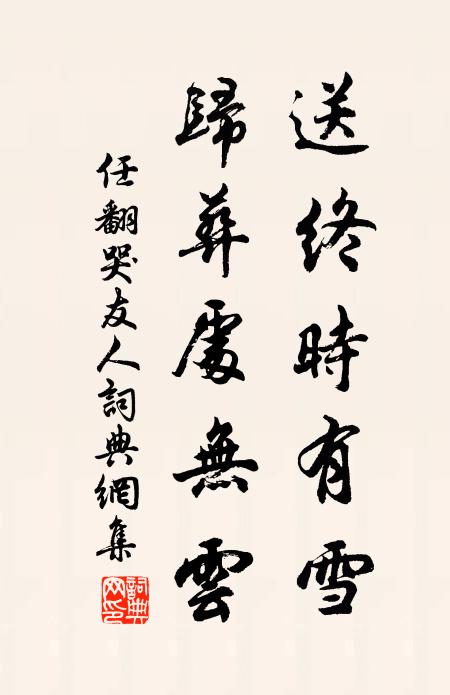 送終時有雪
歸葬處無雲
任翻哭友人詞典網集
詞典網印